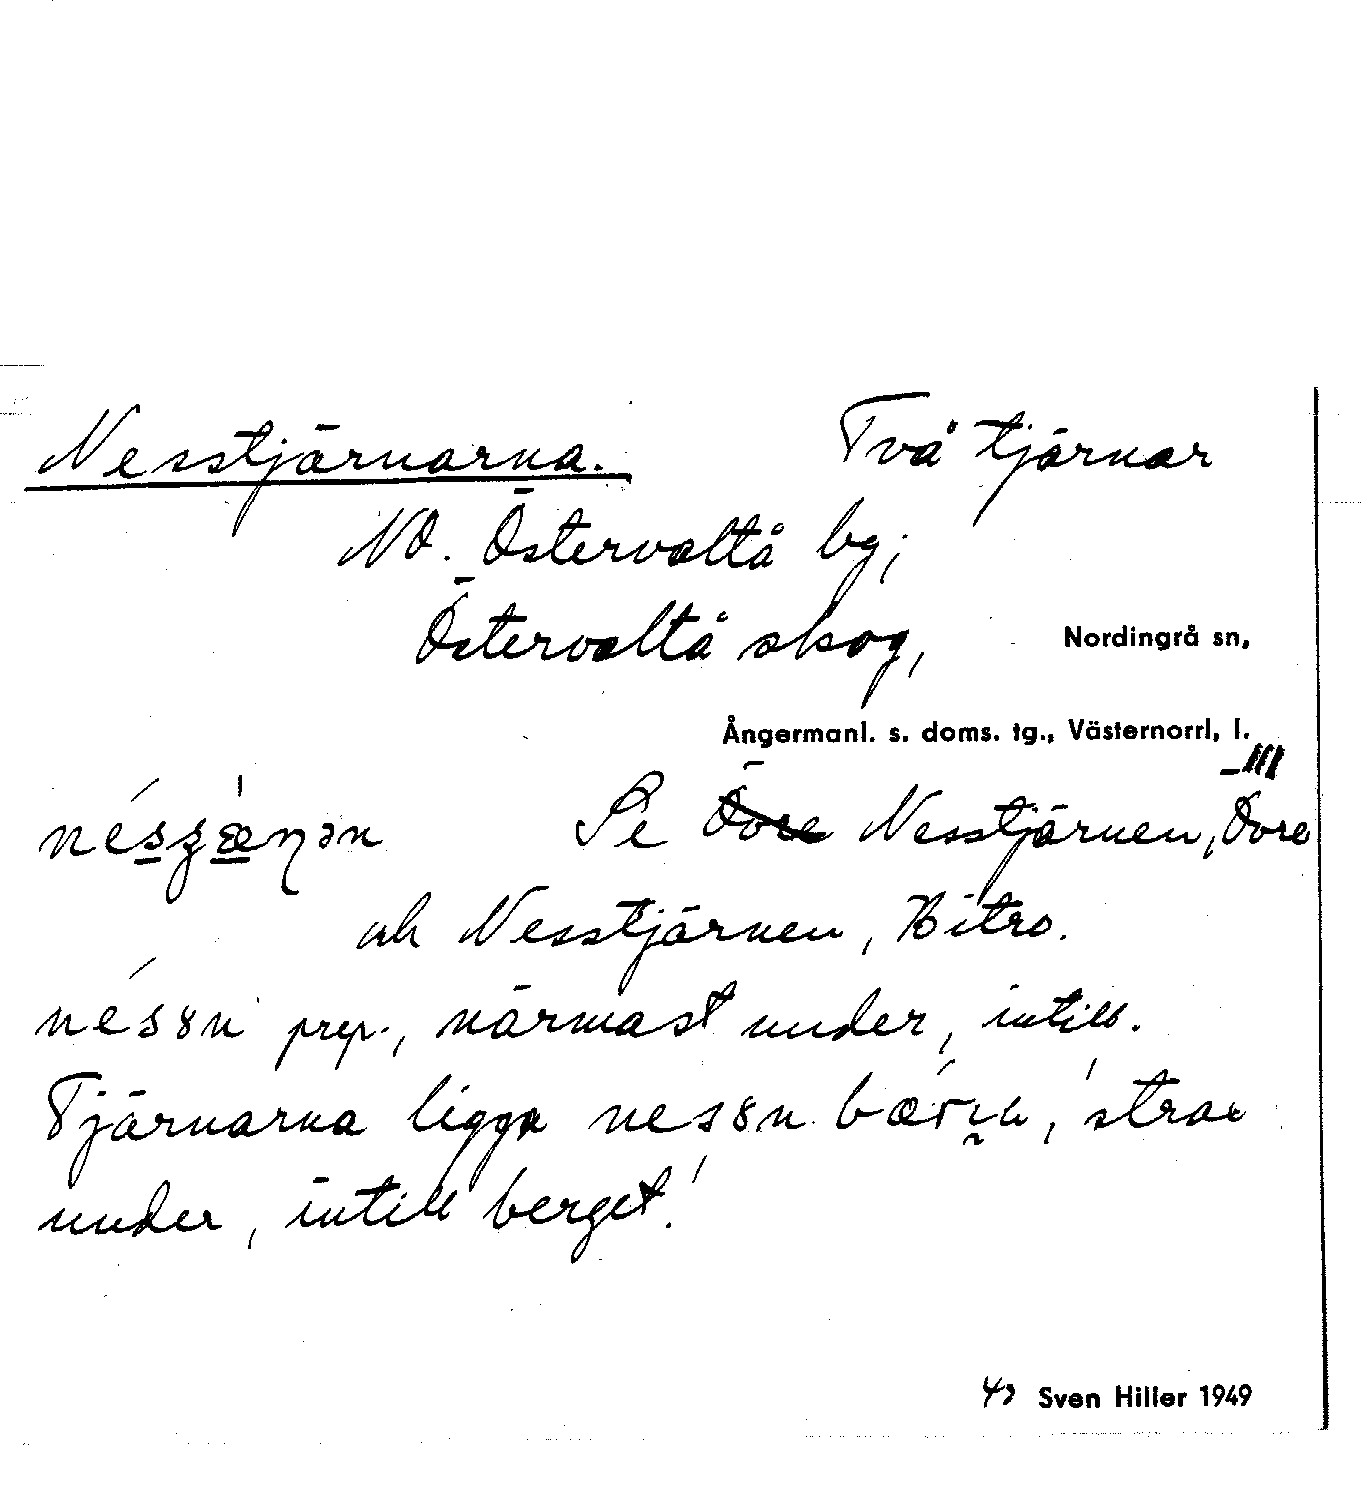 Nesstjärnarna. Två tjärnar
NO. Östervaltå by;
Östervaltå skog, Nordingrå sn,
Ångermanl. s. doms. tg., Västernorrl. l.
Se Övre Nesstjärnen, Övre
och Nesstjärnen, Bitro.
prep., närmast under, intill.
Tjärnarna ligga 'strax
under, intill berget'.
Sven Hiller 1949